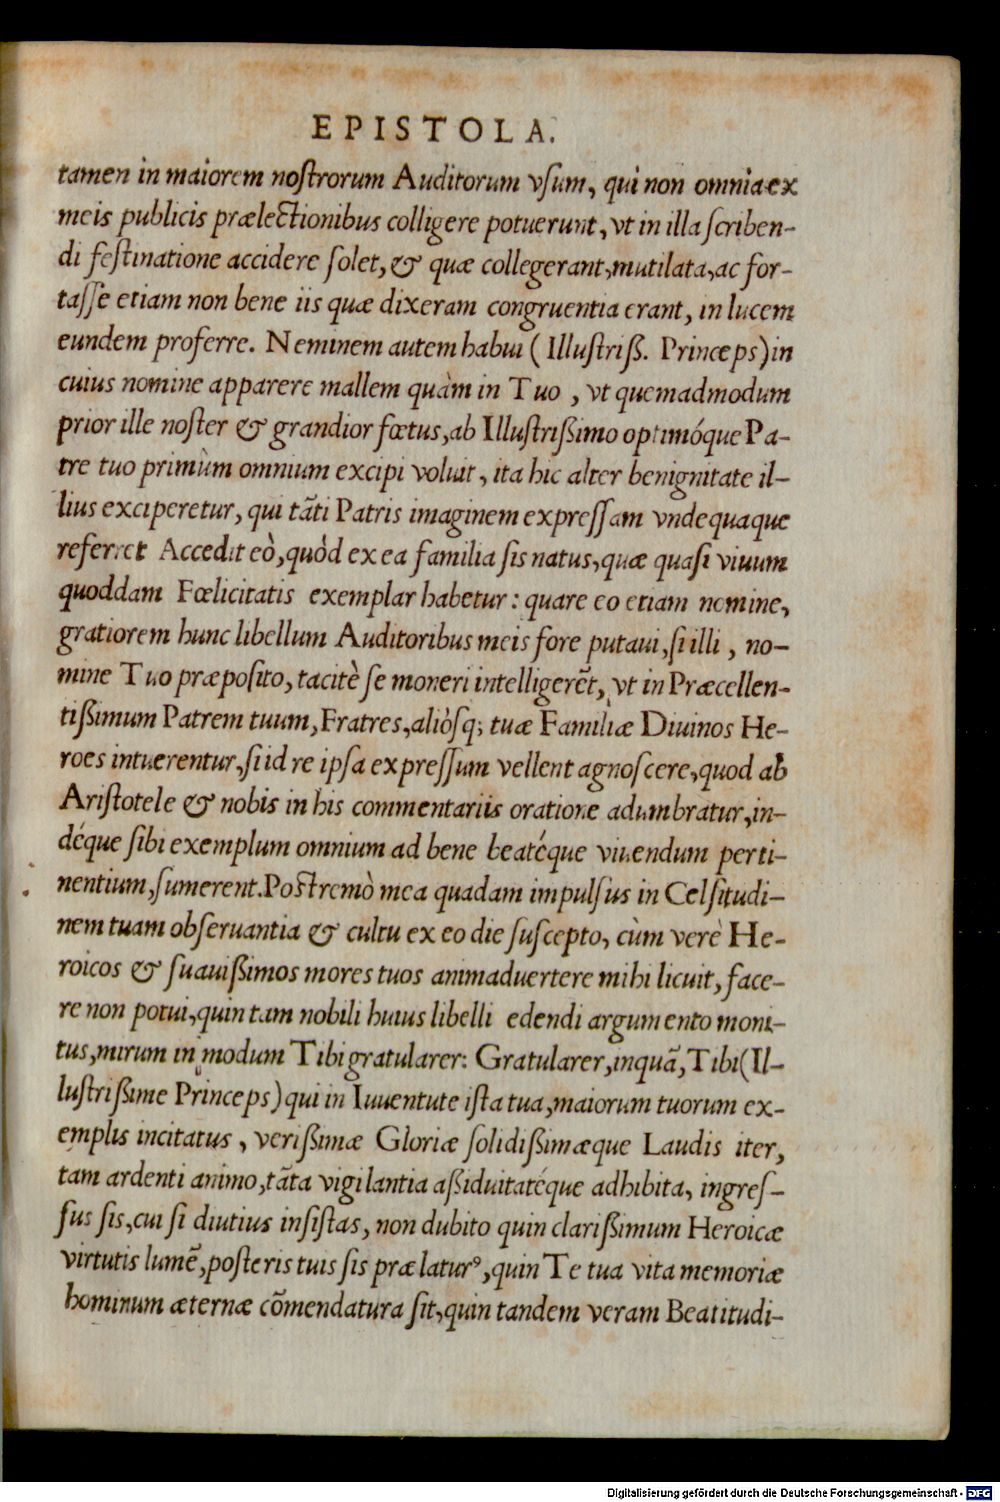 EPISTOLA.
tamen in maiorem noſtrorum Auditorum vſum, qui non omnia ex
meis publicis prælectionibus colligere potuerunt, vt in illa ſcriben-
di feſtinatione accidere ſolet, & quæ collegerant, mutilata, ac for-
taſſe etiam non bene iis quæ dixeram congruentia erant, in lucem
eundem proferre. Neminem autem habui ( Illuſtriß. Princeps) in
cuius nomine apparere mallem quàm in Tuo , vt quemadmodum
prior ille noſter & grandior fœtus, ab Illuſtrißimo optimóque Pa-
tre tuo primùm omnium excipi voluit, ita hic alter benignitate il-
lius exciperetur, qui tāti Patris imaginem expreſſam vndequaque
referret Accedit eò, quòd ex ea familia ſis natus, quæ quaſi viuum
quoddam Fœlicitatis exemplar habetur : quare eo etiam nomine,
gratiorem hunc libellum Auditoribus meis fore putaui, ſi illi , no-
mine Tuo præpoſito, tacitè ſe moneri intelligerēt, vt in Præcellen-
tißimum Patrem tuum, Fratres, aliòſq; tuæ Familiæ Diuinos He-
roes intuerentur, ſi id re ipſa expreſſum vellent agnoſcere, quod ab
Ariſtotele & nobis in his commentariis oratione adumbratur, in-
déque ſibi exemplum omnium ad bene beatéque viuendum perti-
nentium, ſumerent. Poſtremò mea quadam impulſus in Celſitudi-
nem tuam obſeruantia & cultu ex eo die ſuſcepto, cùm verè He-
roicos & ſuauißimos mores tuos animaduertere mihi licuit, face-
re non potui, quin tam nobili huius libelli edendi argumento moni-
tus, mirum in modum Tibi gratularer: Gratularer, inquā, Tibi (Il-
luſtrißime Princeps) qui in Iuuentute iſta tua, maiorum tuorum ex-
emplis incitatus , verißimæ Gloriæ ſolidißimæque Laudis iter,
tam ardenti animo, tāta vigilantia aßiduitatéque adhibita, ingreſ-
ſus ſis, cui ſi diutius inſiſtas, non dubito quin clarißimum Heroicæ
virtutis lumē, poſteris tuis ſis prælaturꝰ, quin Te tua vita memoriæ
hominum æternæ cōmendatura ſit, quin tandem veram Beatitudi-
Digitalisierung gefördert durch die Deutsche Forschungsgemeinschaft - DFG